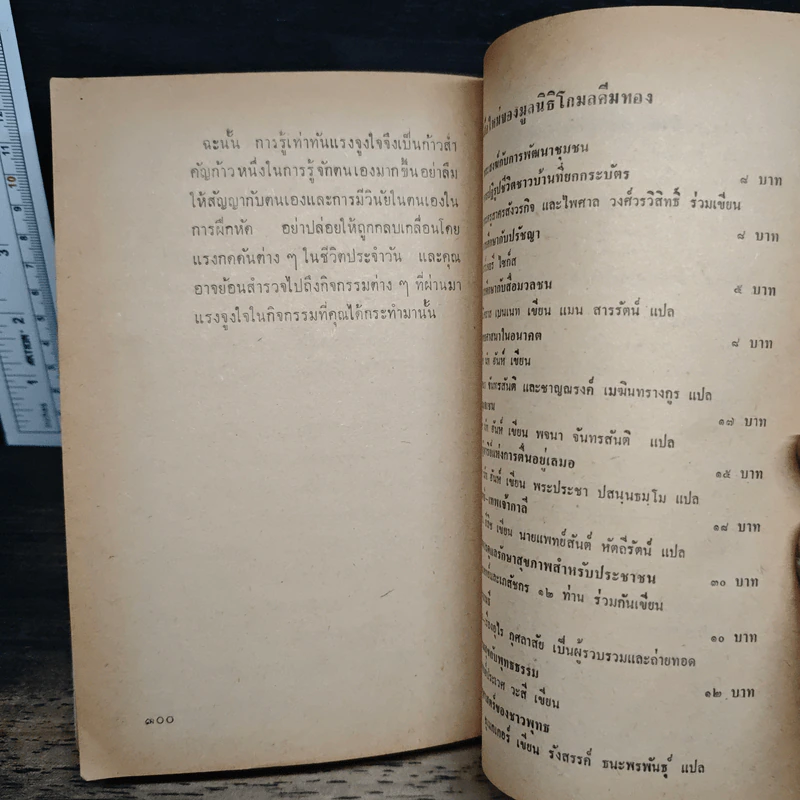 ฉะนั้น การรู้เท่าทันแรงจูงใจจึงเป็นก้าวสำ
คัญก้าวหนึ่งในการรู้จักตนเองมากขึ้นอย่าลืม
ให้สัญญากับตนเองและการมีวินัยในตนเองใน
การฝึกหัด อย่าปล่อยให้ถูกกลบเกลื่อนโดย
แรงกดดันต่าง ๆ ในชีวิตประจำวัน และคุณ
อาจย้อนสำรวจไปถึงกิจกรรมต่าง ๆ ที่ผ่านมา
แรงจูงใจในกิจกรรมที่คุณได้กระทำมานั้น
๑๐๐
ใหม่ของมูลนิธิโกมลคีมทอง
กับการพัฒนาชุมชน
๘ บาท
ชีวิตชาวบ้านที่ยกกระบัตร
และไพศาล วงศ์วรวิสิทธิ์ ร่วมเขียน
กับปรัชญา
๘ บาท
ไซกัส
กับสื่อมวลชน
๕ บาท
เบนเนท เขียน แมน สารรัตน์ แปล
ศาสนาในอนาคต
๘ บาท
ฮันห์ เขียน
จันทรสันติ และชาญณรงค์ เมฆินทรางกูร แปล
๑๗ บาท
ฮันห์ เขียน พจนา จันทรสันติ แปล
แห่งการตื่นอยู่เสมอ
๑๕ บาท
ฮันห์ เขียน พระประชา ปสนฺนธมฺโม แปล
เทพเจ้ากาลี
๑๘ บาท
เขียน นายแพทย์สันต์ หัตถีรัตน์ แปล
ดูแลรักษาสุขภาพสำหรับประชาชน
๓๐ บาท
และเภสัชกร ๑๒ ท่าน ร่วมกันเขียน
๑๐ บาท
กุศลาสัย เป็นผู้รวบรวมและถ่ายทอด
กับพุทธธรรม
๑๒ บาท
ประเวศ วะสี เขียน
ของชาวพุทธ
เขียน รังสรรค์ ธนะพรพันธุ์ แปล